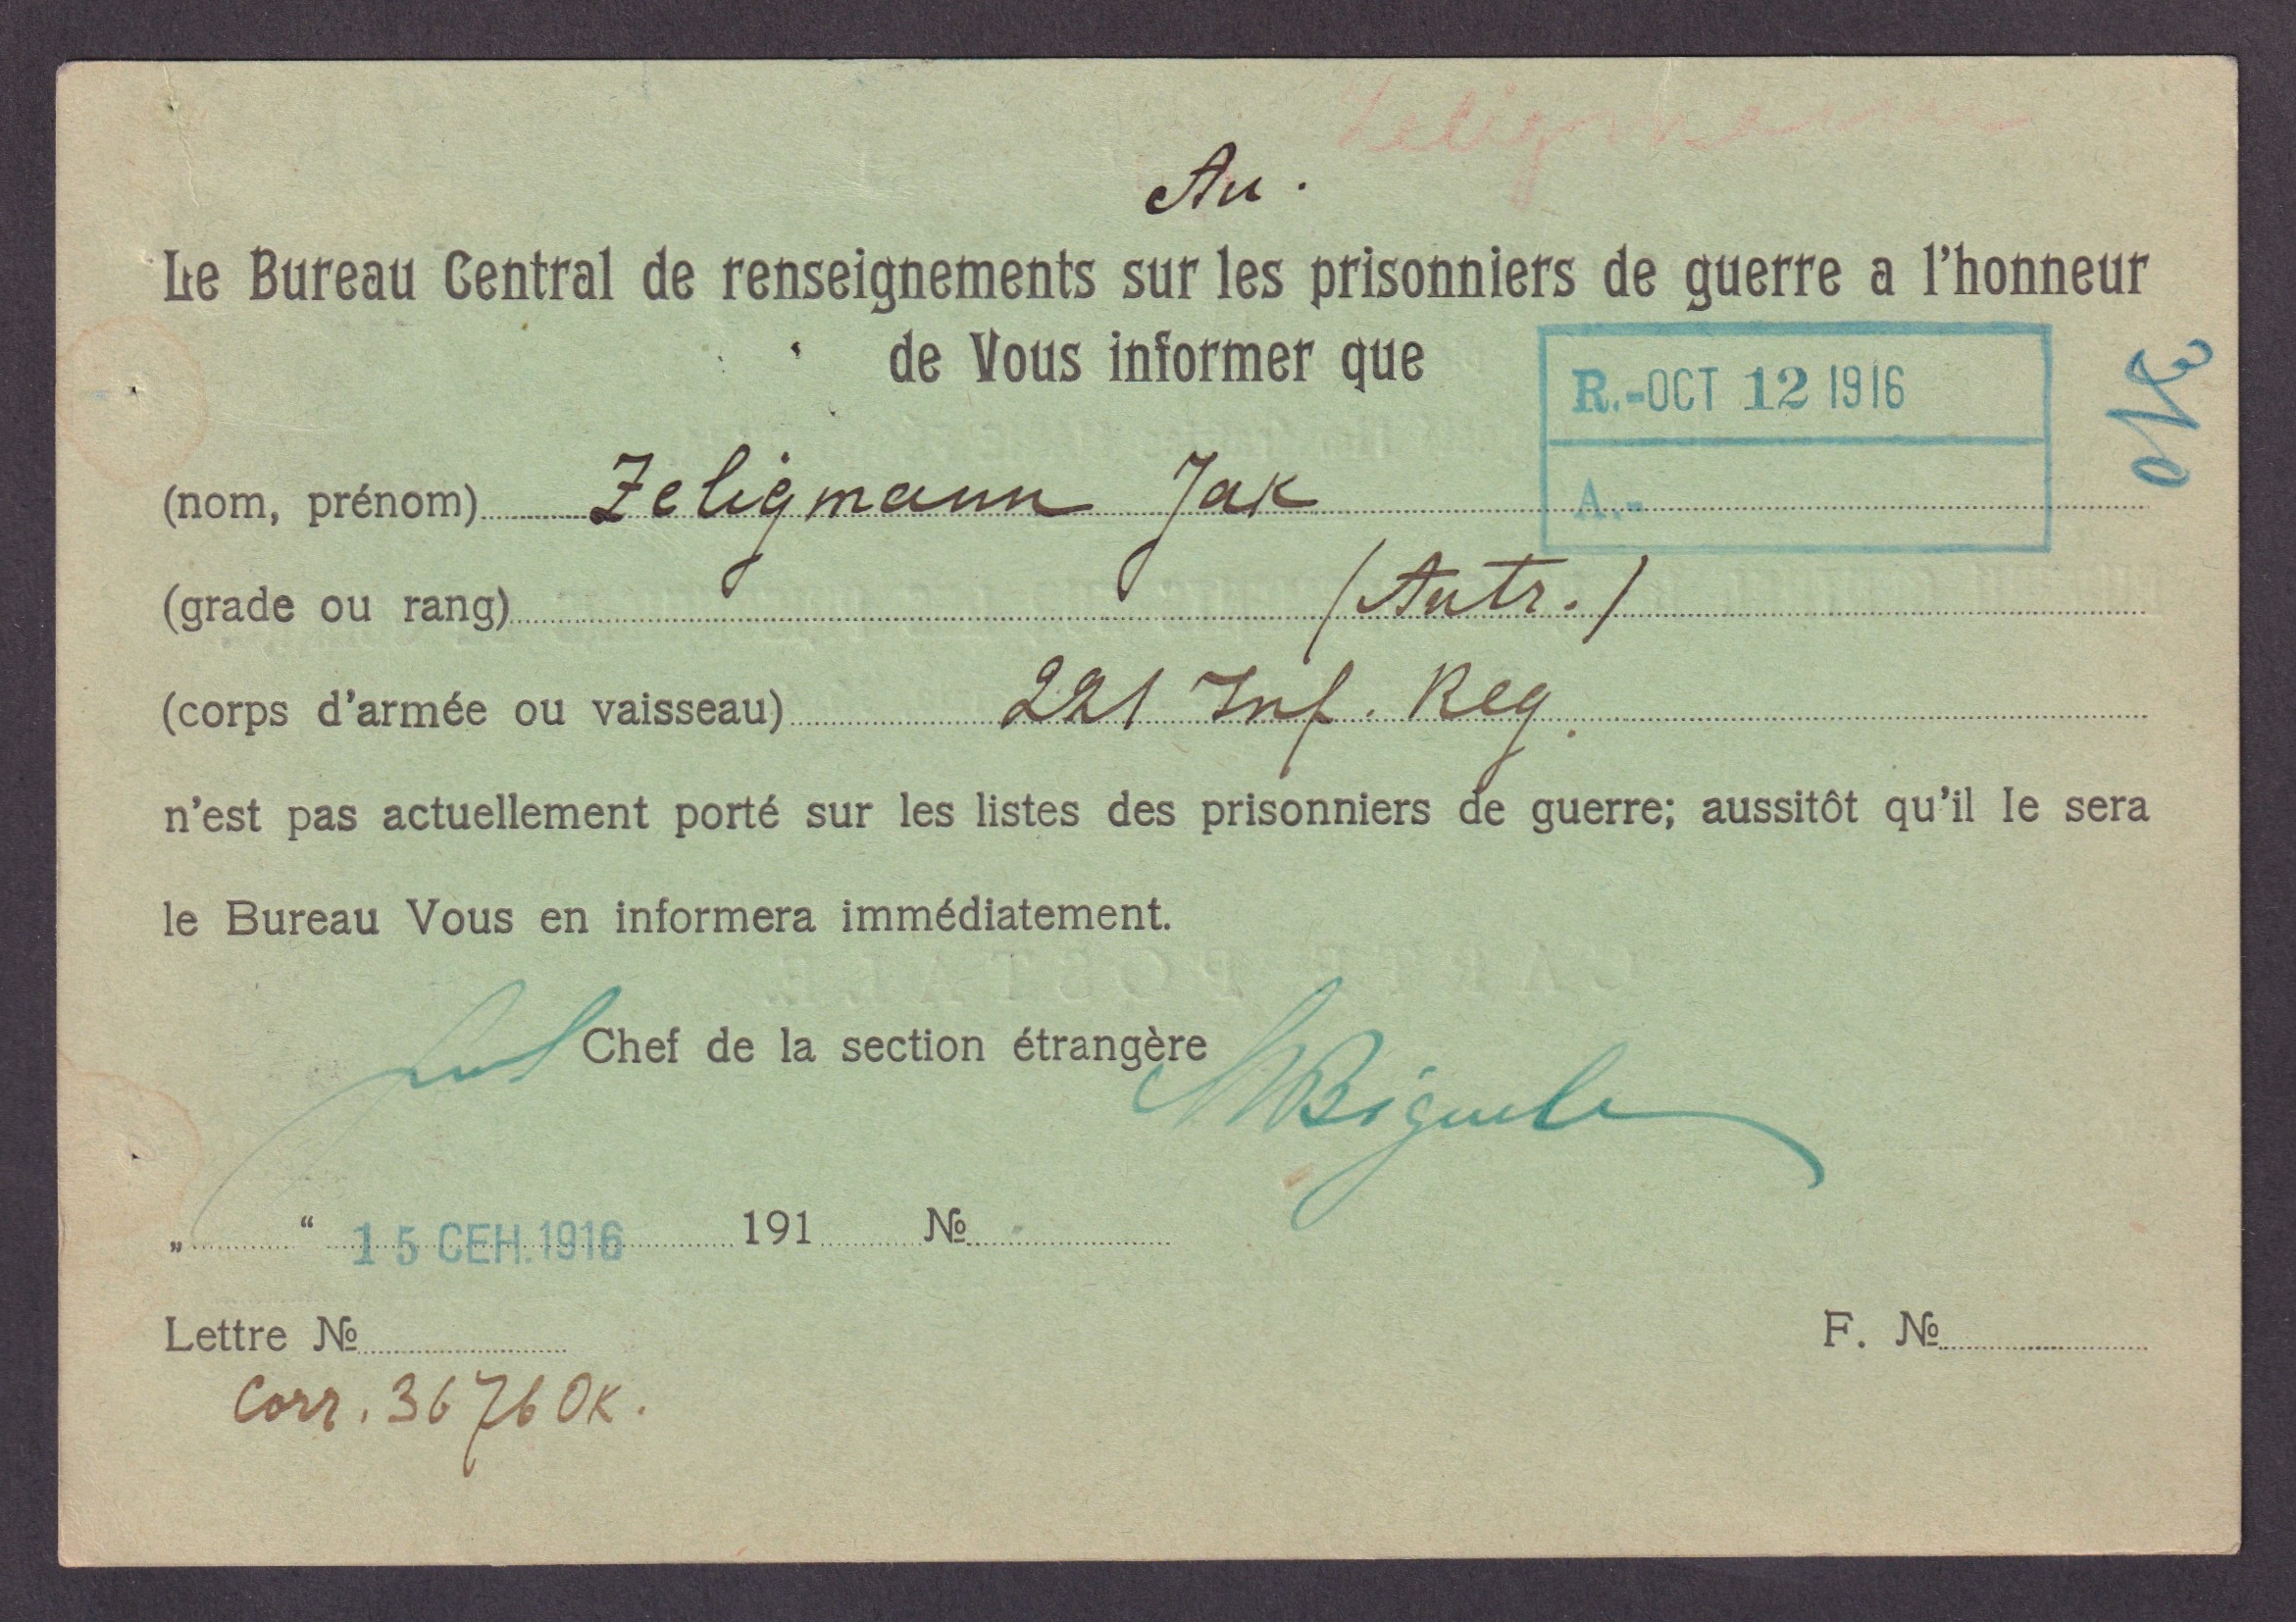 Zeligmann
Au.
Le Bureau Central de renseignements sur les prisonniers de guerre a l'honneur
de Vous informer que
R.-OCT 12 1916
A.-
(nom, prénom) Zeligmann Jak
(grade ou rang) (Autr.)
(corps d'armée ou vaisseau) 221 Inf. Reg.
n'est pas actuellement porté sur les listes des prisonniers de guerre; aussitôt qu'il le sera
le Bureau Vous en informera immédiatement.
Chef de la section étrangère
„ “ 15 СЕН. 1916 191 №
Lettre № F. №
Corr. 3676 OK.